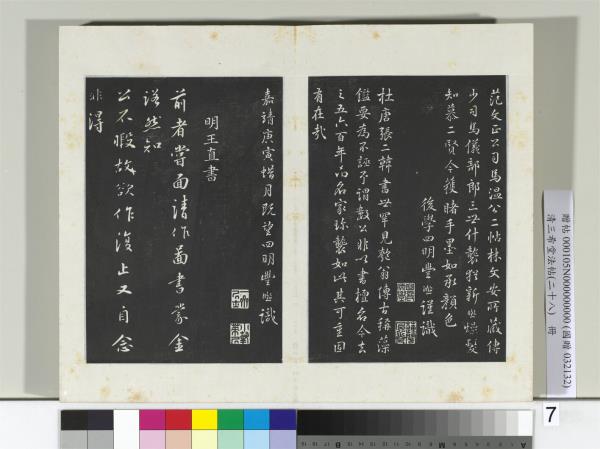 范文正公司馬溫公二帖林文安所藏傳
少司馬儀部郎三世什襲猶新幽燥髮
知慕二賢今獲睹手墨如承顏色
後學四明豐 謹識
杜唐張二韓書世罕見 翁傳古鑄藻
鑑要為不誣予謂數公非以書擅名今去
之五六百年而名家珍襲如此其可重固
有在哉
嘉靖庚寅蜡月既望四明豐 識
明王直書
前者嘗面請作圖書蒙金
諾然知
公不暇故欲作復止又自念
非得
贈帖 000105N000000000 (國贈 032132)
清三希堂法帖(二十八) 冊
7